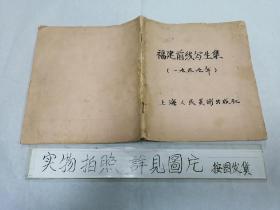 福建前线写生集
(一九五九年)
上海人民美術出版社
实物拍照 詳見圖片 按图发集